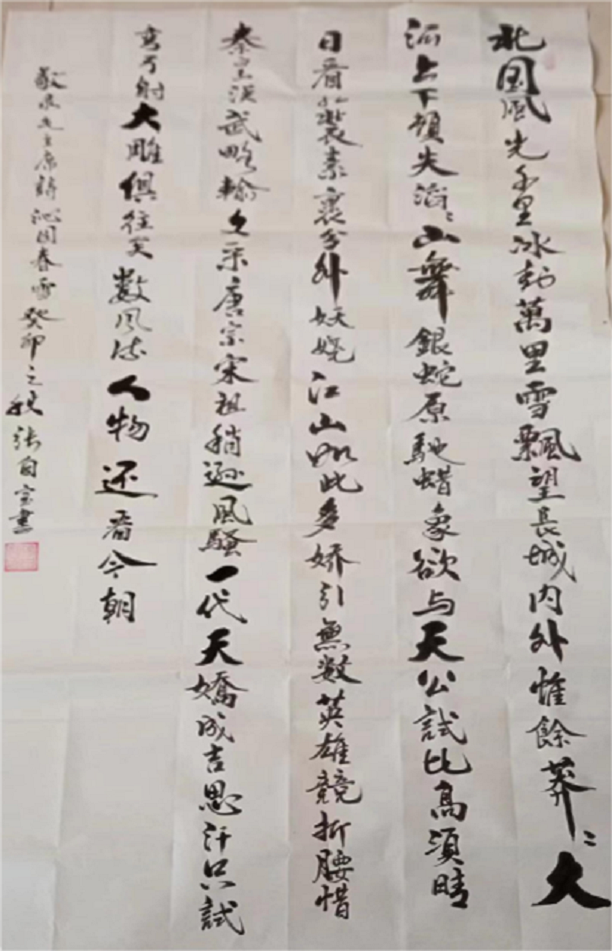 北国風光千里冰封萬里雪飄望長城内外惟餘莽〻大
河上下頓失滔〻山舞銀蛇原馳蜡象欲与天公試比高須晴
日看红裝素裹分外妖娆江山如此多娇引無数英雄競折腰惜
秦皇汉武略輸文采唐宗宋祖稍遜風騷一代天嬌成吉思汗只試
弯弓射大雕俱往矣数风流人物还看今朝
敬录毛主席詩沁园春雪癸卯之秋张自書